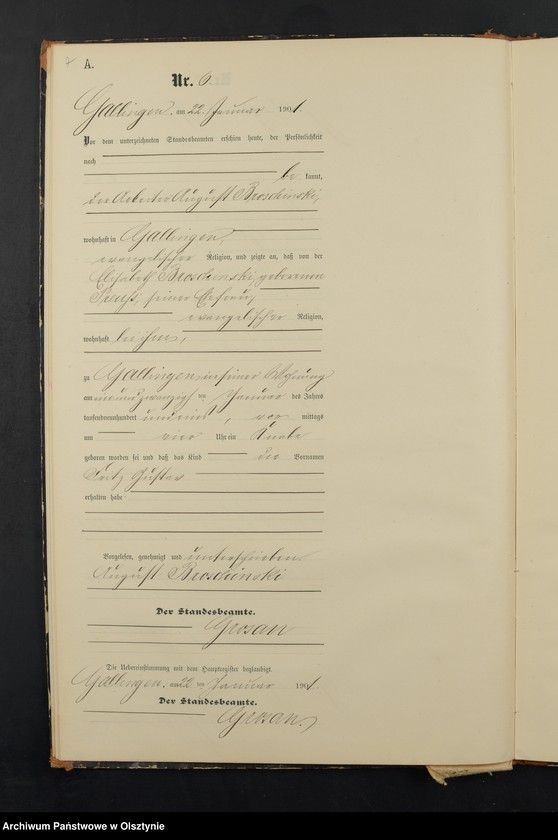 7 A.
Nr. 6
Gallingen, am 22. Januar 1901.
Vor dem unterzeichneten Standesbeamten erschien heute, der Persönlichkeit
nach
be kannt,
der Arbeiter August Broschinski,
wohnhaft in Gallingen,
evangelischer Religion, und zeigte an, daß von der
Elisabeth Broschinski, geborenen
Preuß, seiner Ehefrau,
evangelischer Religion,
wohnhaft bei ihm,
zu Gallingen in seiner Wohnung
am zwanzigsten Januar des Jahres
tausendneunhundert und eins, vor mittags
um vier Uhr ein Knabe
geboren worden sei und daß das Kind die Vornamen
Fritz Gustav
erhalten habe
Vorgelesen, genehmigt und unterschrieben
August Broschinski
Der Standesbeamte.
Grosan
Die Uebereinstimmung mit dem Hauptregister beglaubigt.
Gallingen, am 22 ten Januar 1901.
Der Standesbeamte.
Grosan.
Archiwum Państwowe w Olsztynie